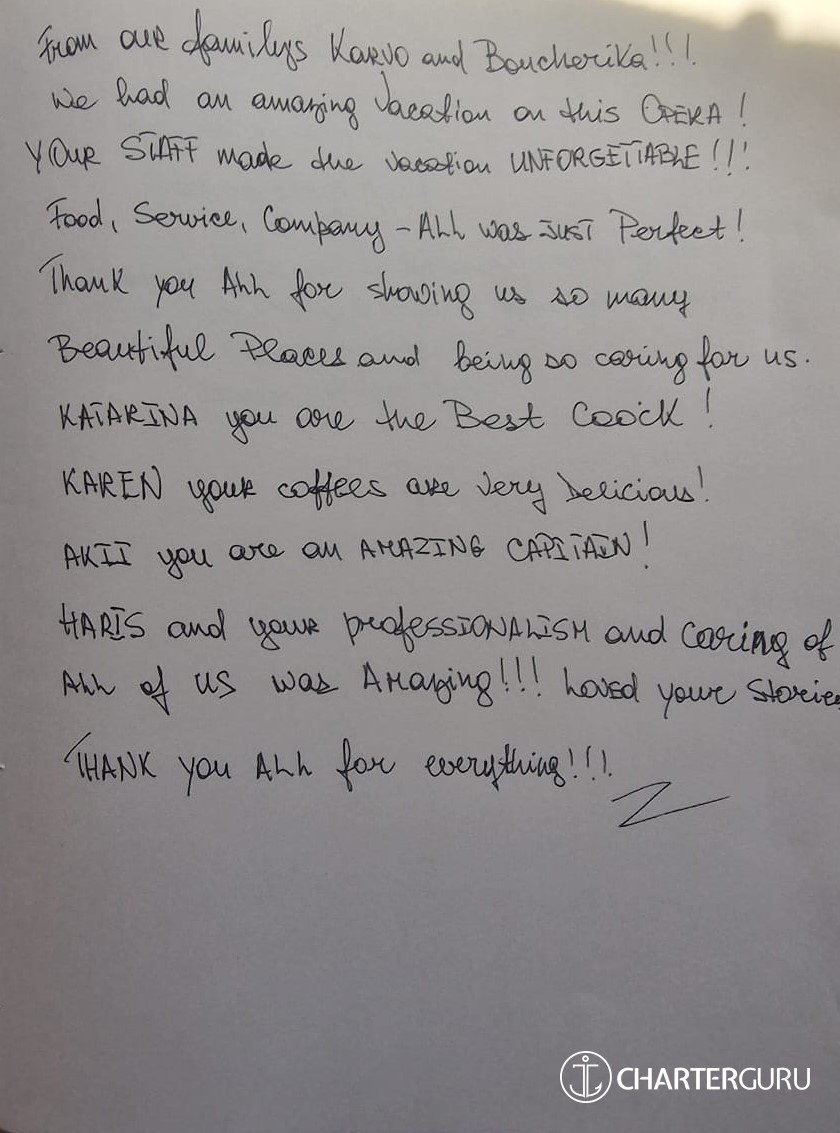 From our familys Karvo and Boucherika!!!
We had an amazing vacation on this OPERA!
YOUR STAFF made the vacation UNFORGETTABLE!!!
Food, Service, Company - ALL was JUST Perfect!
Thank you ALL for showing us so many
Beautiful Places and being so caring for us.
KATARINA you are the Best Coock!
KAREN your coffees are very Delicious!
AKII you are an AMAZING CAPITAIN!
HARIS and your professIONALISM and caring of
ALL of us was Amazing!!! Loved your Stories
THANK you ALL for everything!!!
CHARTERGURU